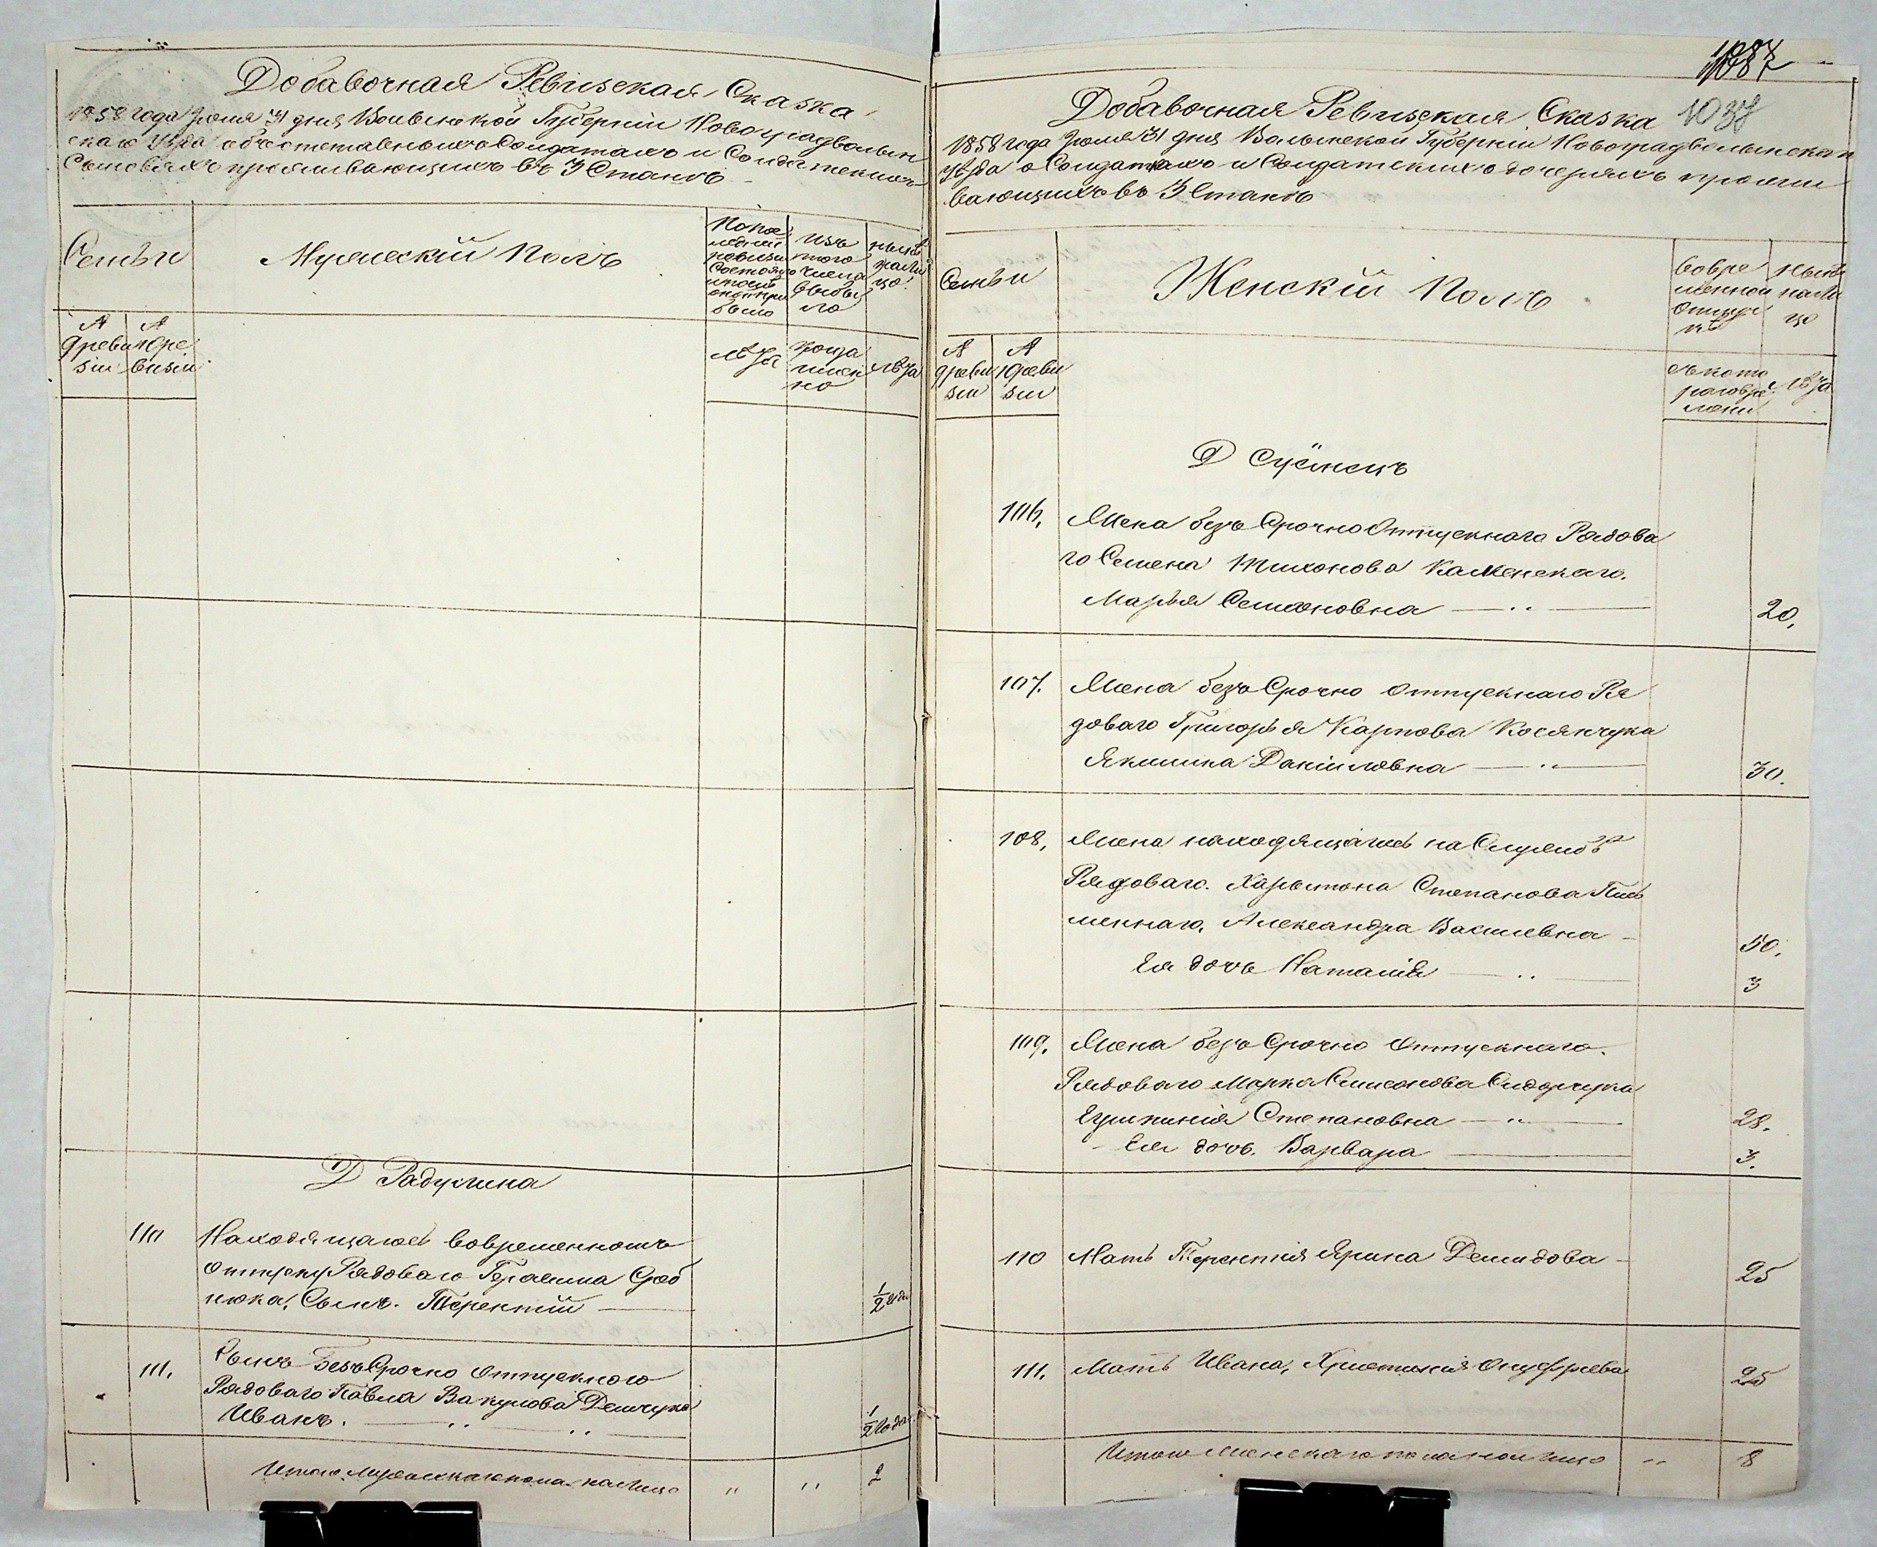 Добавочная Ревизская Сказка
1858 года Июня 31 дня Волынской Губернии Новоградволын
скаго Уезда об отставныхъ Солдатахъ и Солдатскихъ
Сыновьяхъ проживающихъ въ 3 Стане
Семьи
Мужескій Полъ
По пос
ледней
ревизии
состояло
было
Изъ
того
числа
выбы
ло
ныне
на ли
цо
№
9 реви
зіи
№
10 ре
визіи
лета
когда
именно
лета
Д Радулина
110
Находящагося вовременномъ
отпуску Рядоваго Герасима
нюка, Сынъ. Терентій
1/2 года
111.
Сынъ Безъ Срочно отпускного
Рядоваго Павла Вакулова Демчука
Иванъ.
1/2 года
Итого Мужескаго пола на Лицо
" " 2
1037
Добавочная Ревизская Сказка
1858 года Июня 31 дня Волынской Губерніи Новоградволынскаго
Уезда о Солдаткахъ и Солдатскихъ дочеряхъ прожи
вающихъ въ 3 Стане
Семьи
Женскій Полъ
Вовре
менной
отлуч
ке
ныне
на ли
цо
№
9 реви
зіи
№
10 реви
зіи
съ кото
раго вре
мени
лета
Д Суёмецъ
106,
Жена безъ Срочно Отпускнаго Рядова
го Семена Тихонова Каменскаго.
Марья Семионовна
20,
107.
Жена безъ Срочно отпускнаго Ря
доваго Григорья Карпова Косянчука
Якилина Даниловна
30.
108,
Жена находящагось на Службе
Рядоваго. Харитона Степанова Пись
меннаго, Александра Василевна
50.
Ея дочь Наталія
3
109.
Жена безъ Срочно отпускнаго.
Рядоваго Марка Симонова Сидорчука
Степановна
28.
Ея дочь. Варвара
3.
110
Мать Терентія Ярина Демидова
25
111.
Мать Ивана, Христинія Онуфріева
25
Итого Женскаго пола на лицо
" 8